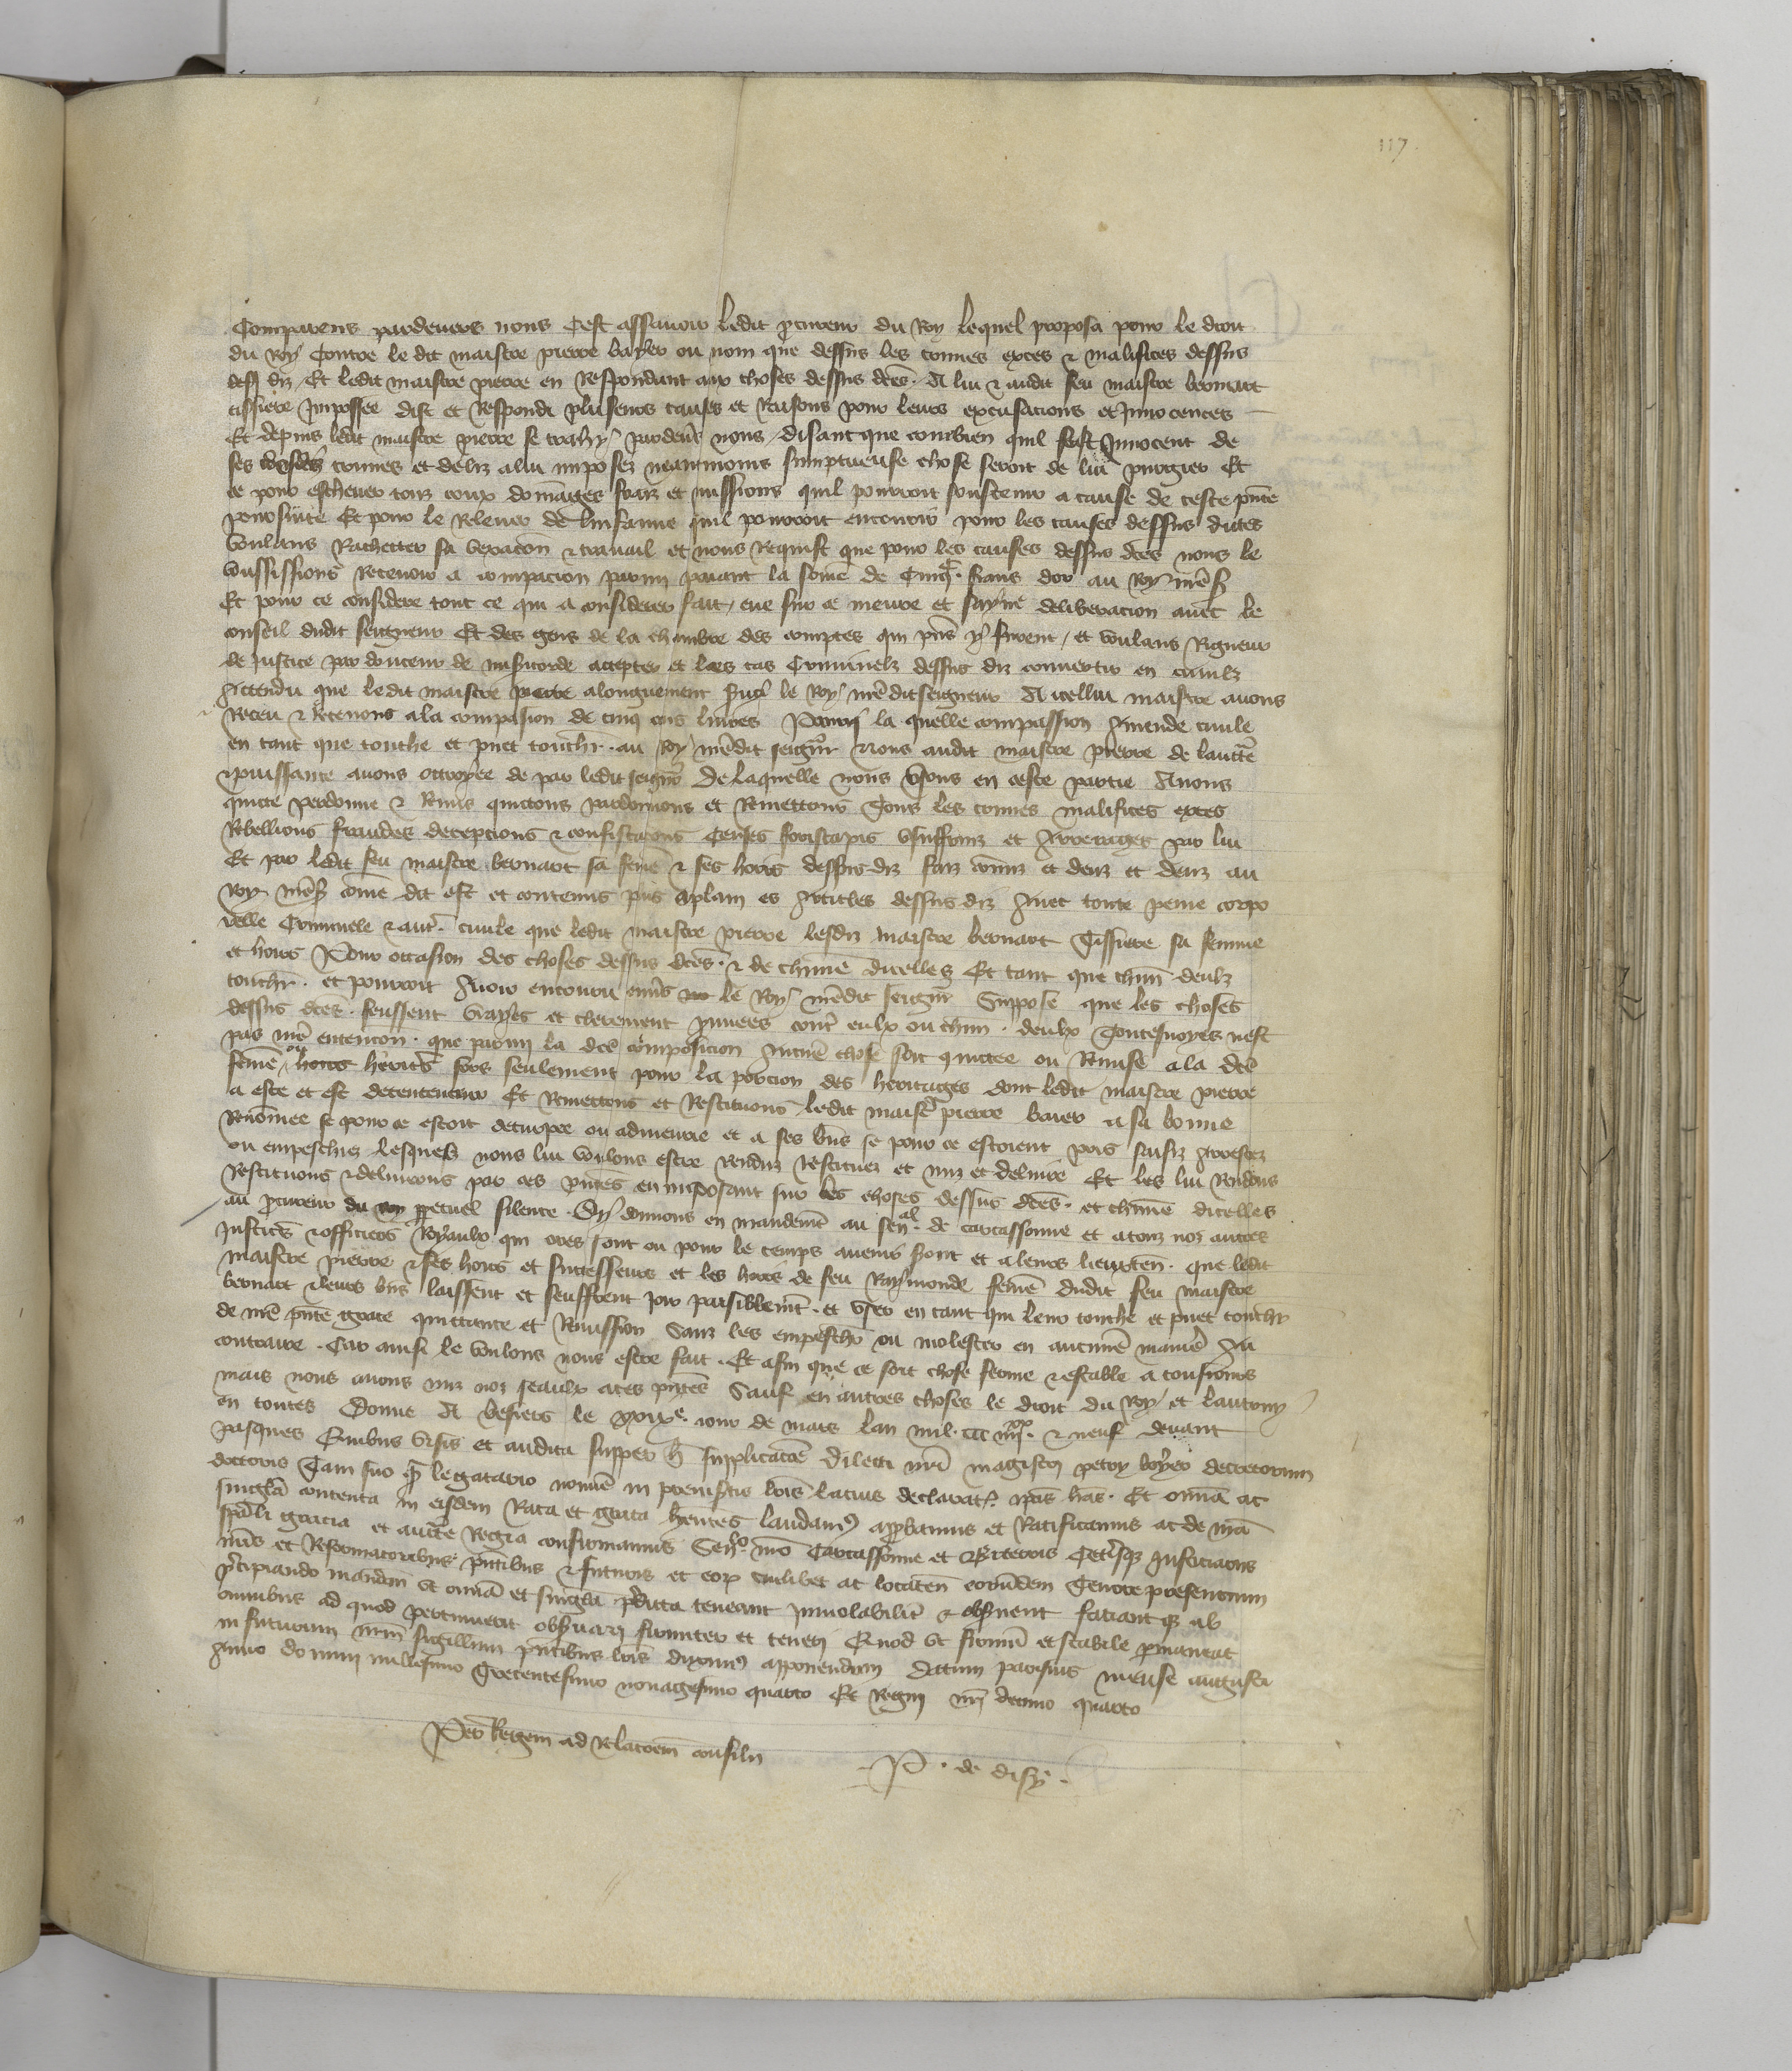 117
Comparens pardevers nous Cest assavoir ledit procureur du Roy lequel proposa pour le droit
du Roy Contre le dit maistre pierre bayer ou nom que dessus les crimes exces & malefices dessus
diz Et ledit maistre pierre en Respondant aux choses dessus dces. A lui & audit feu maistre bernart
tissiere Imposee dist et Respondi pluseurs causes et Raisons pour leurs excusacions et Innocences
Et depuis ledit maistre pierre se trahy pardevers nous disant que combien quil feust Innocent de
ses crimes et deliz alui imposez neantmoins sumptueuse chose seroit de lui purgier Et
ce pour eschever touz coux domaiges fraiz et missions quil pourroit soustenir a cause de ceste pnte
poursuite Et pour le Relever de linfamie quil pourroit encourir pour les causes dessus dictes
voulans Rachetter sa vexacon & travail et nous Requist que pour les causes dessus dces nous le
voussissions Recevoir a composicion parmi paiant la some de Cinq C. frans dor au Roy mess
Et pour ce considere tout ce qui a considerer fait, eue sur ce meure et sayne deliberacion avec le
conseil dudit seigneur Et des gens de la chambre des comptes qui pns y furent, et voulans Rigueur
de Justice par douceur de misericorde attepter et les cas Criminelz dessus diz convertir en civilz
Attendu que ledit maistre pierre alonguement servi le Roy mondit seigneur A icellui maistre avons
Receu & Recevons ala composion de cinq cens livres Parmi la quelle compassion Amende civile
en tant que touche et puet toucher au Roy mondit seigneur Nous audit maistre pierre de lauctte
& puissance avons ottroyee de par ledit seigneur De laquelle nous usons en ceste partie Avons
quicte perdonne & Remis quictons pardonnons et Remettons Tous les crimes malifices exces
Rebellions fraudes decepcions & confiscacions Censes foriscapis usuffruiz et Arrerages par lui
Et par ledit feu maistre bernart sa feme & ses hoirs dessus diz faiz comiz et deuz et deuz au
Roy mess come dit est et contenus plus aplain es Articles dessus diz Avec toute peine corpo
relle Criminele & autr. civile que ledit maistre pierre lesdiz maistre bernart Tissiere sa femme
et hoirs Pour occasion des choses dessus dces. & de chune dicelles Et tant que chun deulz
touchr. et pourroit Avoir encouru envers le Roy mondit seignr Suppose que les choses
dessus dces. feussent vrayes et clerement prouvees contr eulx ou chun. deulx Toutesvoyes nest
pas nre entencon. que parmi la dce composicion Aucune chose soit quictee ou Remise a la dce
feme ou hoirs heritrs fors seulement pour la porcion des heritages dont ledit maistre pierre
a este et est detenteneur Et Remettons et Restituons ledit maistre pierre boier a sa bonne
Renommee se pour ce estoit deturpee ou admenrie et a ses bns se pour ce estoient pris saisiz Arrestez
ou empeschiez Lesquels nous lui voulons estre renduz restituez et miz et delivre Et les lui Rendons
Restituons & delivrons par ces pntes en imposant sur les choses dessus dces. et chune dicelles
au procureur du roy perpetuel silence. Sy donnons en mandemt au senal. de carcassonne et a touz noz autres
Justicrs & officiers Royaulx qui ores sont ou pour le temps avenir seront et a leurs lieuxten. que ledit
maistre pierre & ses hoirs et successeurs et les hoirs de feu Raymonde feme dudit feu maistre
bernart & leurs bns laissent et seuffrent joir paisiblemt. et user en tant qui leur touche et puet touchr
de nre pnte grace quittance et Remission Sanz les empescher ou molester en aucune manier Au
contraire. Car ainsi le voulons nous estre fait. Et afin que ce soit chose ferme & estable a tousiours
mais nous avons miz noz seaulx aces pntes Sauf en autres choses le droit du Roy et lautruy
en toutes Donne A besiers le xxixe. jour de mars lan mil. ccc iiiixx. & neuf devant
pasques Quibus visis et audita supper h supplicatoe dilecti nri magistri petri boyer decretorum
doctoris Tam suo qm legatario nomine in preinsertis lris latius declarat ipas lras. Et omia ac
singula contenta in eisdem Rata et grata hentes laudamus approbamus et Ratificamus ac de nra
spali gracia et aucte Regia confirmamus Senllo nro Carcassonne et Biterris Ceterisque Justiciariis
nris et Reformatoribus pntibus & futuris et eorum cuilibet ac locaten eorumdem Tenore presencium
precipiendo mandam ut omia et singula predicta teneant Inviolabiliter & observent faciantque ab
omnibus ad quod pertinuerit observari firmiter et teneri Quod ut firmum et stabile permaneat
in futurum nrm sigillum pntibus lris duximus apponendum Datum parisius mense augusti
Anno domini millesimo Trecentesimo nonagesimo quarto Et Regni nri decimo quarto
Per Regem ad relacoem consilii
P. de disy.